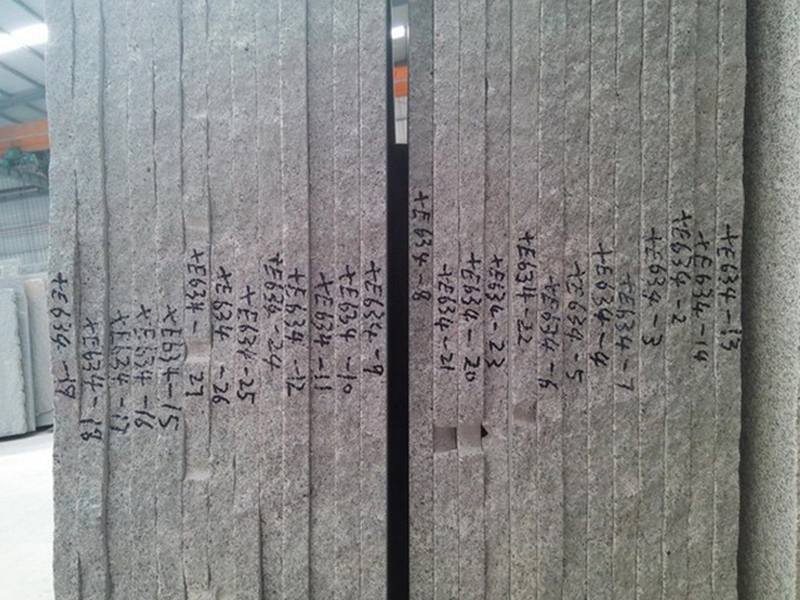 +E634-13
+E634-14
+E634-2
+E634-3
+E634-7
+E634-4
+E634-5
+E634-6
+E634-22
+E634-23
+E634-20
+E634-21
+E634-8
+E634-9
+E634-10
+E634-11
+E634-12
+E634-24
+E634-25
+E634-26
+E634-27
+E634-15
+E634-16
+E634-17
+E634-18
+E634-19